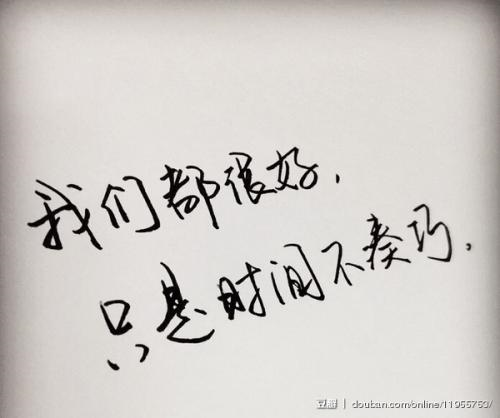 我们都很好,
只是时间不凑巧,
豆瓣 | douban.com/online/11955753/